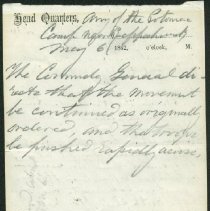 Head Quarters, Army of the Potomac
Camp near
May 6 1862, o'clock, M.
The Comdg General di-
rects that the movement
be continued as originally
ordered, and the troops
be pushed rapidly across.